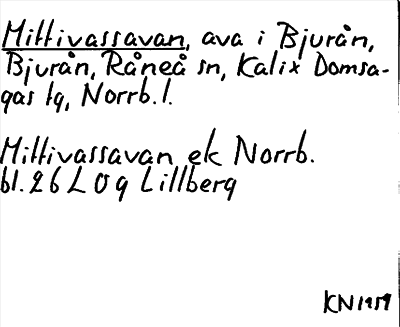 Mittivassavan, ava i Bjurån,
Bjurån, Råneå sn, Kalix Domsa-
gas tg, Norrb.l.
Mittivassavan ek Norrb.
bl. 26 L 0 g Lillberg
KN 1959